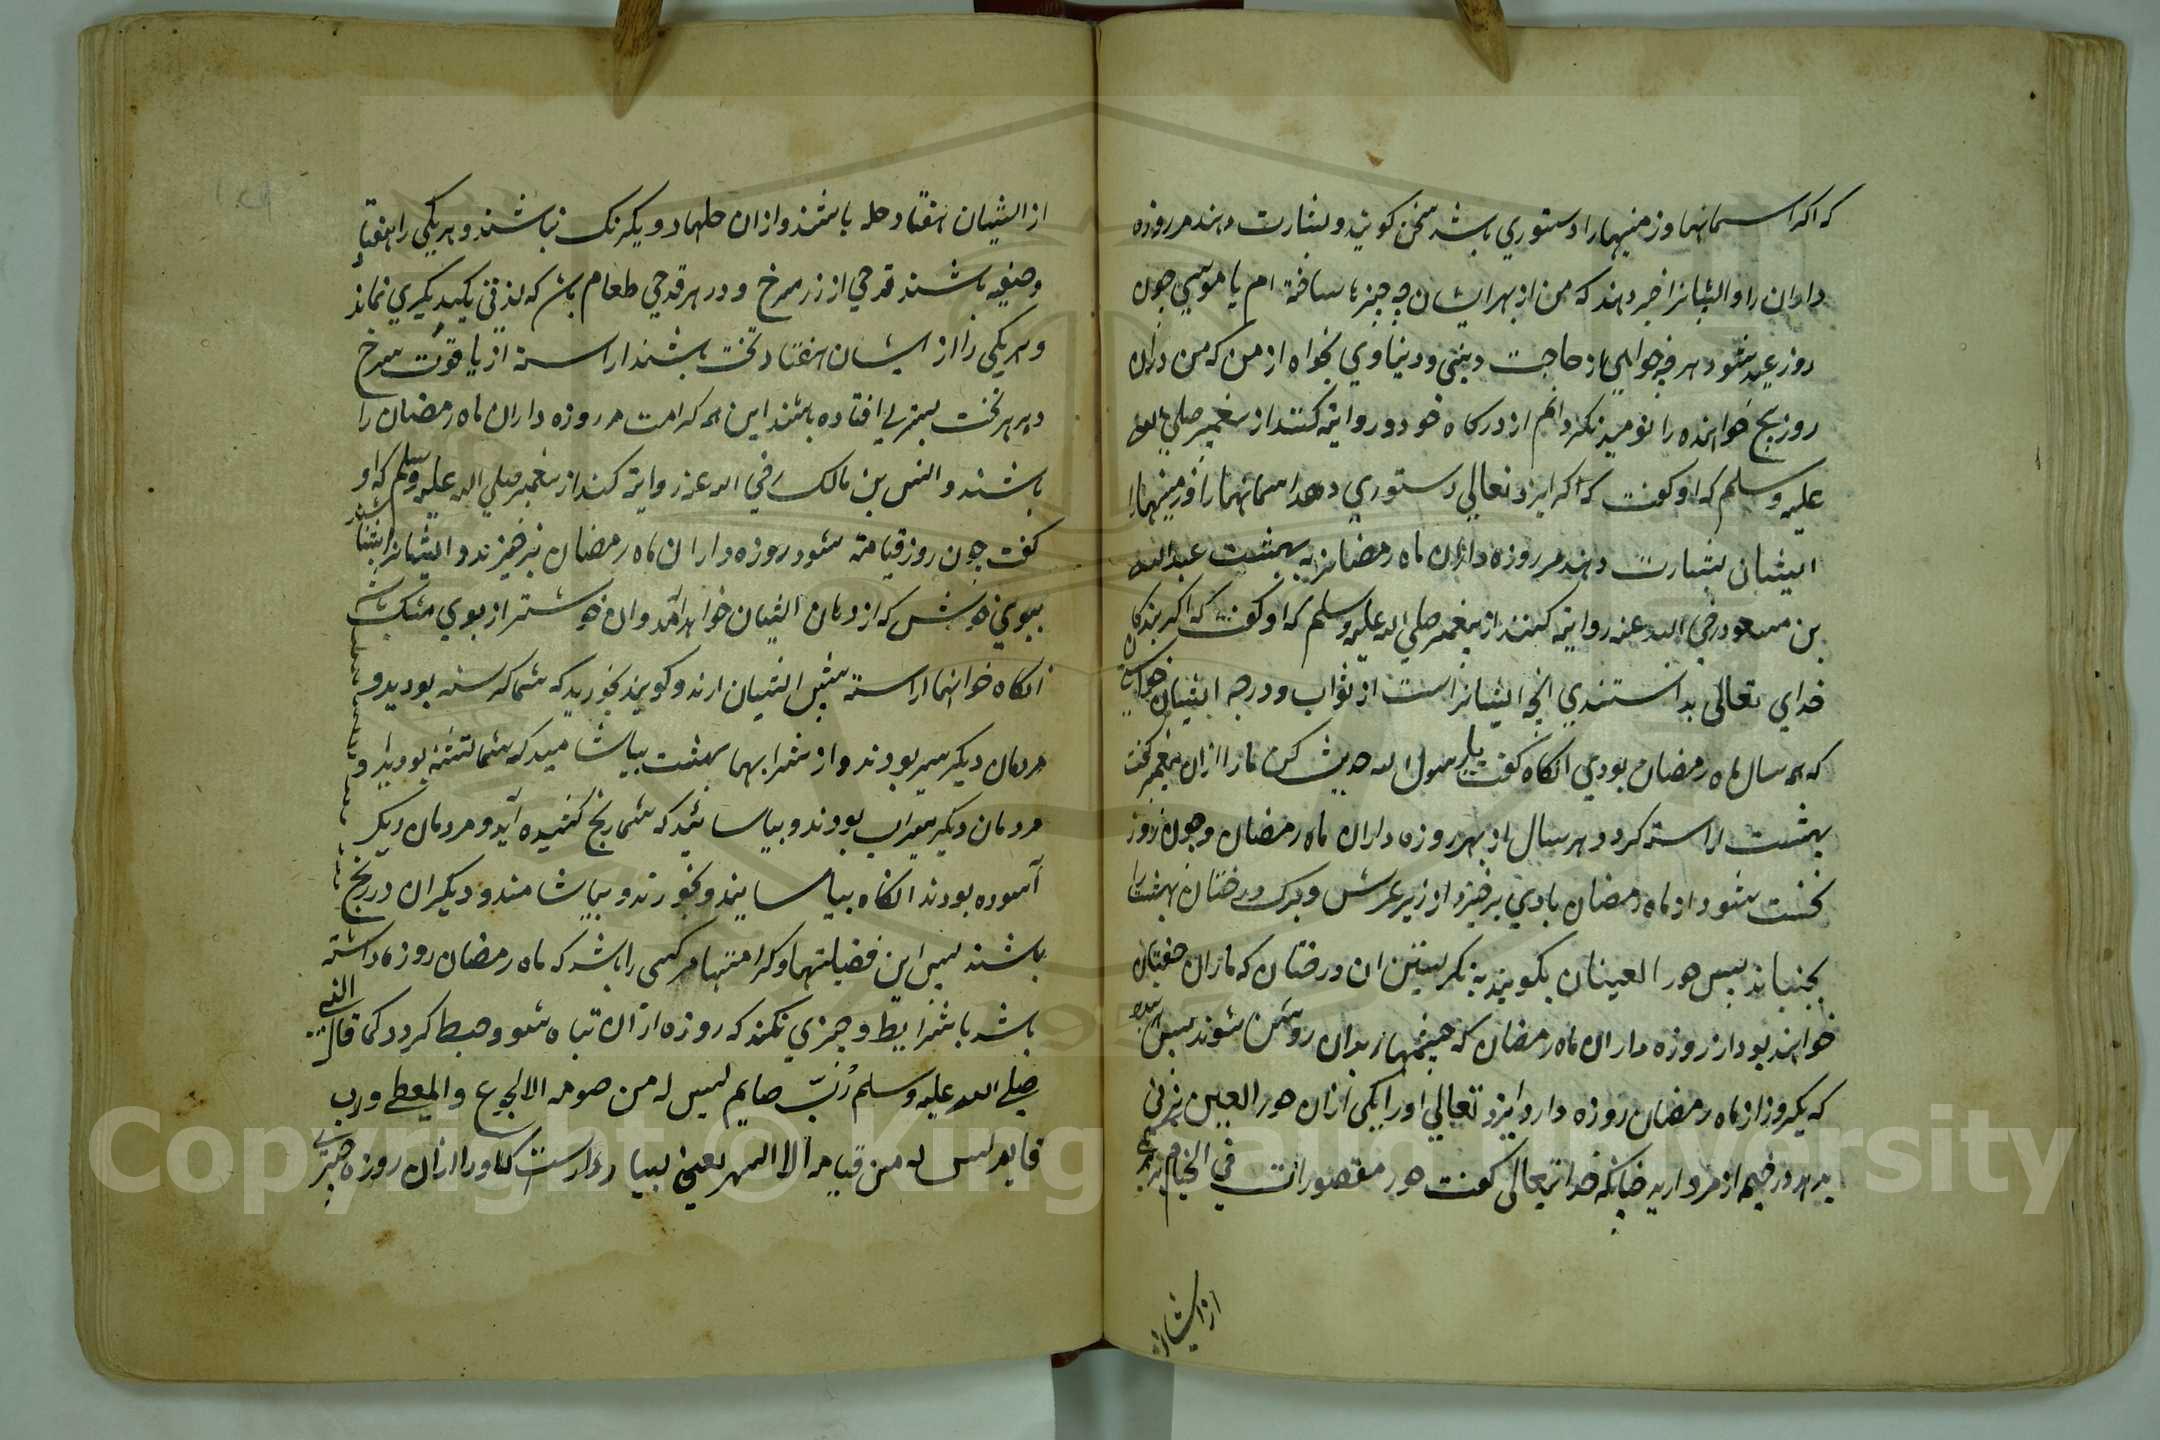 که اکر اسمانها و زمنیها را دستوري باشد سخن کویند و بشارت دهند مر روزه
داران را و ایشانرا خبر دهند که من از بهر ایشان چه چیزها ساخته ام یا موسي چون
روز عید شود هر چه خواهي از حاجت دیني و دنیاوي بخواه از من که من دران
روز هیچ خواهنده را نومید نکردانم از درکاه خود و روایة کنند از پیغمبر صلي الله
علیه و سلم که او کفت که اکر ایزد تعالي دستوري دهد اسمانهارا و زمینهارا
ایشان بشارت دهند مر روزه داران ماه رمضانرا به بهشت عبد الله
بن مسعود رضي الله عنه روایة کنند از پیغمبر صلي الله علیه و سلم که او کفت که اکر بندکان
خداي تعالی بدانستندي انچه ایشانراست از ثواب و درجه ایشان خواستي
که همه سال ماه رمضان بودي انکاه کفت یا رسول الله حدیث کن مارا ازان پیغمبر کفت
بهشت اراسته کردد هر سال از بهر روزه داران ماه رمضان و چون روز
نخست شود از ماه رمضان بادي برخیزد از زیر عرش و برک درختان بهشت را
بجنباند پس حور العینان بکویند بنکریستن ان درختان که مارا ان جفتان
خواهند بود از روزه داران ماه رمضان که چشمهاء بدان روشن شوند پس بنده
که یکروز از ماه رمضان روزه دارد ایزد تعالي اورا یکی ازان حور العین بزني
بدهد در خیمه از مروارید چنانکه خدایتعالی کفت حور مقصورات في الخیام
از ایشان
از ایشان هفتاد حله باشند و ازان حلهاء دو یکرنک نباشند و هر یکي را هفتاد
وصیفه باشند قدحي از زر سرخ و در هر قدحي طعام باش که لذتي بیکدیکري نماند
و هر یکي را از ایشان هفتاد تخت باشند اراسته از یاقوت سرخ
و بر هر تخت بستري افتاده باشند این همه کرامت مر روزه داران ماه رمضان را
باشند و انس بن مالک رضي الله عنه روایة کند از پیغمبر صلي الله علیه وسلم که او
کفت چون روز قیامة شود روزه داران ماه رمضان برخیزند و ایشانرا بشناسند
ببوي خوش که از دهان ایشان خواهد آمد و ان خوشتر از بوي مشک باشد
انکاه خوانهاء اراسته پیش ایشان ارند و کویند بخورید که شما کرسنه بودید و
مردمان دیکر سیر بودند و از شرابهاء بهشت بیاشامید که شما تشنه بودید و
مردمان دیکر سیراب بودند و بیاسائید که شما رنج کشیده آید و مردمان دیکر
آسوده بودند انکاه بیاسایند و بخورند و بیاشامند و دیکران در رنج
باشند پس این فضیلتها و کرامتها مر کسی را باشد که ماه رمضان روزه داشته
باشد با شرایط و چیزي نکند که روزه ازان تباه شود و حبط کردد کما قال النبي
صلي الله علیه وسلم رُبّ صایم لیس له من صومه الا الجوع والعطش و رب
قایم لیس له من قیامه الا السهر یعني بسیار روزه دارست که اورا ازان روزه چیزي